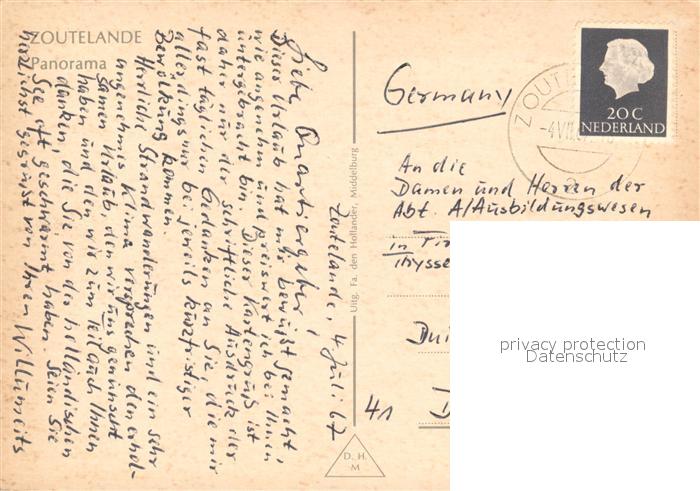 ZOUTELANDE
Panorama
Zoutelande, 4. Juli 67
Liebe Quartiergeber!
Dieser Urlaub hat mir bewußt gemacht,
wie angenehm und preiswert ich bei Ihnen
untergebracht bin. Dieser Kartengruß ist
daher nur der schriftliche Ausdruck der
fast täglichen Gedanken an Sie, die mir
allerdings nur bei jeweils kurzfristiger
Bewölkung kommen.
Herrliche Strandwanderungen und ein sehr
angenehmes Klima versprechen den erhol-
samen Urlaub, den wir uns gewünscht
haben und den wir zum Teil auch Ihnen
danken, die Sie von der holländischen
See oft geschwärmt haben. Seien Sie
herzlichst gegrüßt von Ihren Willumeits
Uitg. Fa. den Hollander, Middelburg
D. H.
M
ZOUTE
-4 VII
20 C
NEDERLAND
Germany
An die
Damen und Herren der
Abt. A/Ausbildungswesen
in
Thysse
Dui
41
privacy protection
Datenschutz